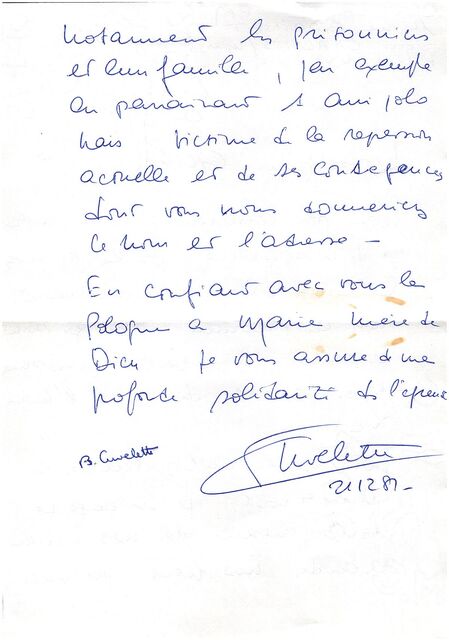 notamment les prisonniers
et leur famille, par exemple
en parrainant 1 ami polo
nais victime de la repression
actuelle et de ses consequences
dont vous nous donneriez
le nom et l'adresse -
En confiant avec vous la
Pologne a Marie mère de
Dieu je vous assure d'une
profonde solidarité ds l'épreuve
B.
21 12 81-